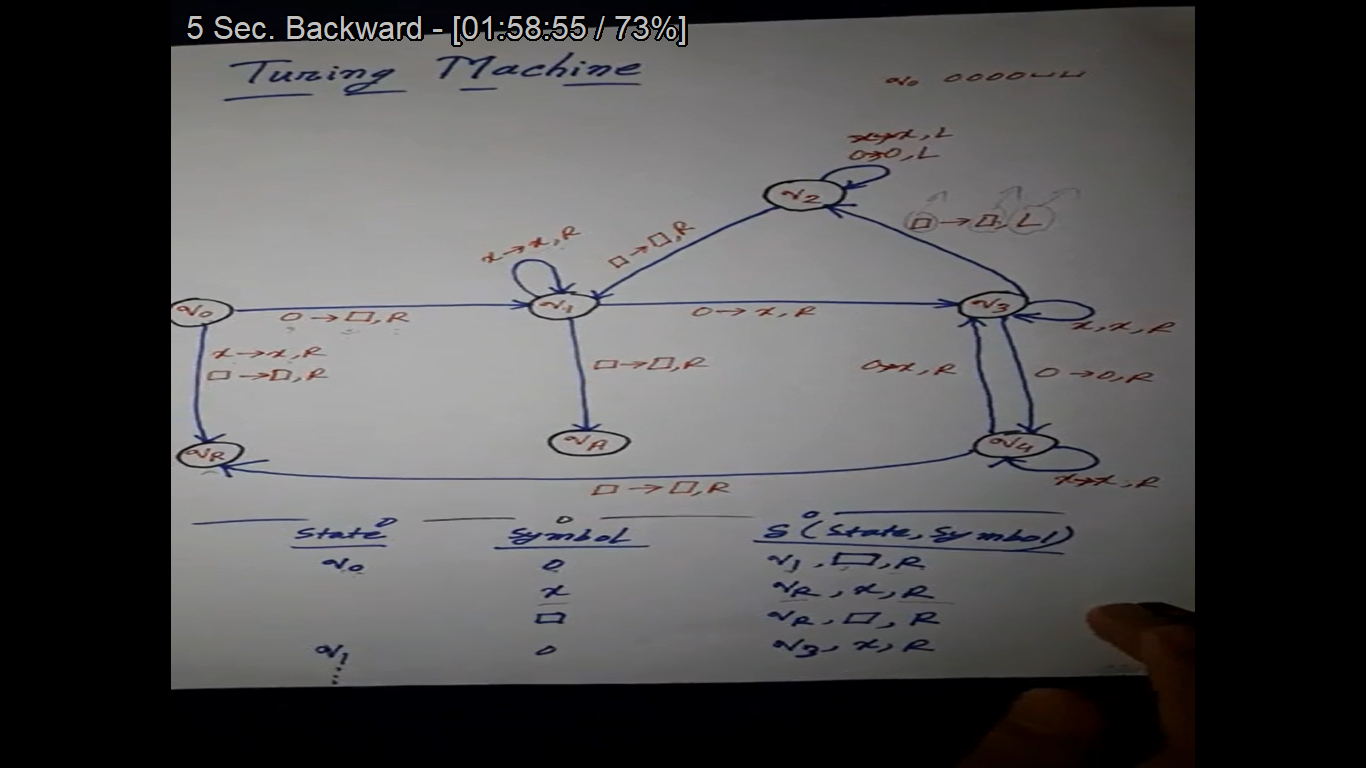 5 Sec. Backward - [01:58:55 / 73%]
Turing Machine
q0 0000␣␣
x→x, L
0→0, L
q2
□→□, L
x→x, R
□→□, R
q0
q1
q3
0→□, R
0→x, R
x, x, R
x→x, R
□→□, R
□→□, R
0→x, R
0→0, R
qR
qA
q4
x→x, R
□→□, R
State Symbol δ(State, Symbol)
q0 0 q1, □, R
x qR, x, R
□ qR, □, R
q1 0 q3, x, R
⋮